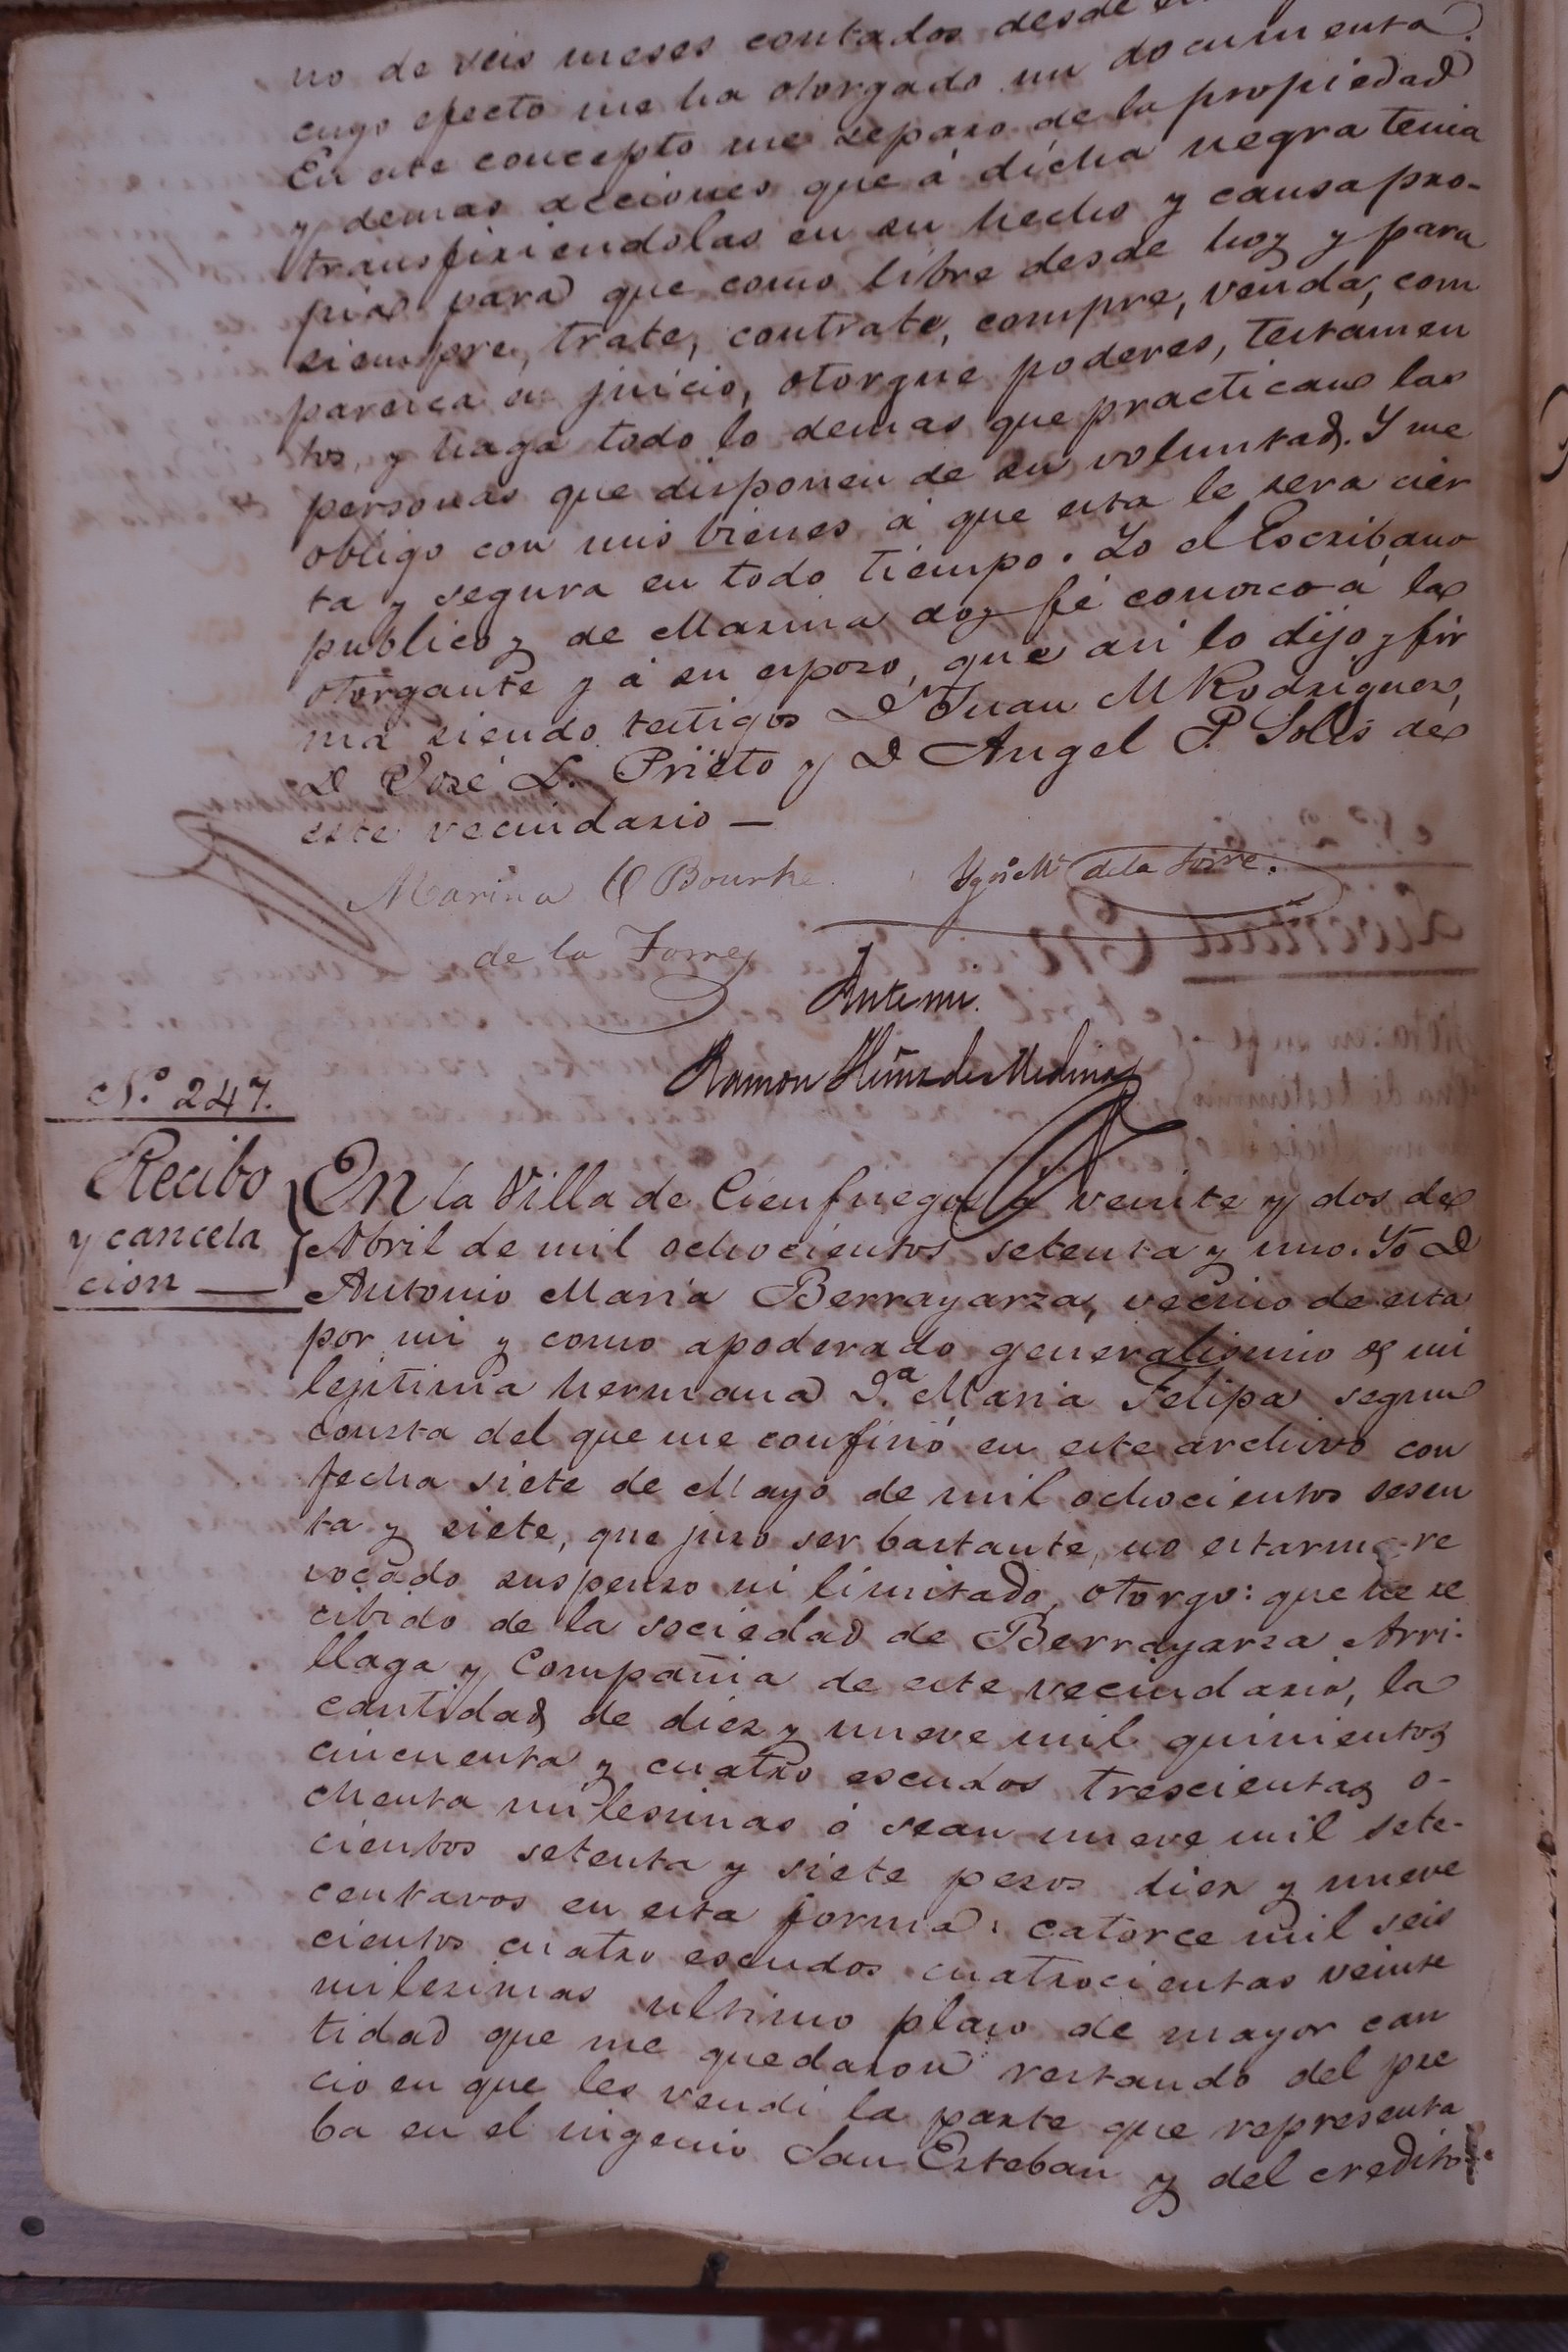 no de seis meses contados desde el
cuyo efecto me ha otorgado un documento.
En este concepto me separo de la propiedad
y demas acciones que á dicha negra tenia
transfiriendolas en su hecho y causa pro-
pia para que como libre desde hoy y para
siempre, trate, contrate, compre, venda, com
paresca en juicio, otorgue poderes, testamen
tos, y haga todo lo demas que practican las
personas que disponen de su voluntad. Y me
obligo con mis bienes á que esta le sera cier
ta y segura en todo tiempo. Yo el Escribano
publico y de Marina doy fé conosco á la
otorgante y á su esposo, que asi lo dijo y fir
ma siendo testigos Dn Juan M Rodriguez,
D José L. Prieto y D Angel P. Solis de
este vecindario —
Marina O Bourke
de la Torre
Ygno Ma de la Torre.
Ante mi.
Ramon Hernandez Medina
No. 247.
Recibo
y cancela
cion —
En la Villa de Cienfuegos á veinte y dos de
Abril de mil ochocientos setenta y uno. Yo D
Antonio Maria Berrayarza, vecino de esta
por mi y como apoderado generalisimo de mi
lejitima hermana Da. Maria Felipa segun
consta del que me confirió en este archivo con
fecha siete de Mayo de mil ochocientos sesen
ta y siete, que juro ser bastante, no estarme re
vocado suspenso ni limitado, otorgo: que he re
cibido de la sociedad de Berrayarza Arri-
llaga y Compañia de este vecindario, la
cantidad de diez y nueve mil quinientos
cincuenta y cuatro escudos trescientas o-
chenta milesimas ó sean nueve mil sete-
cientos setenta y siete pesos diez y nueve
centavos en esta forma: catorce mil seis
cientos cuatro escudos cuatrocientas veinte
milesimas ultimo plaso de mayor can
tidad que me quedaron restando del pre
cio en que les vendi la parte que representa
ba en el ingenio San Esteban y del credito